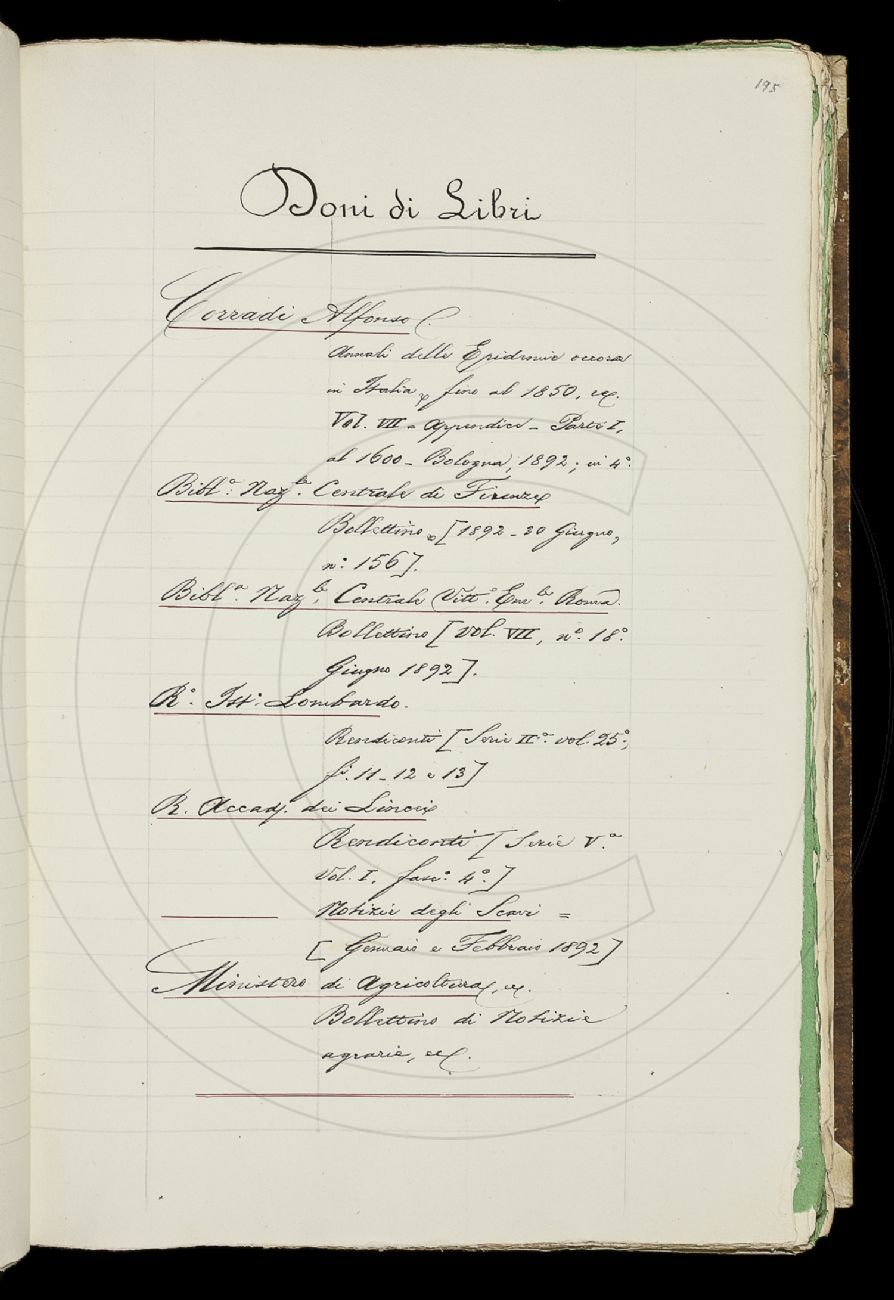 195
Doni di Libri
Corradi Alfonso.
Annali delle Epidemie occorse
in Italia fino al 1850, ec.
Vol. VII - Appendici - Parte I.
al 1600 - Bologna, 1892; in 4°.
Bibl.ª Naz.le Centrale di Firenze
Bollettino [1892 - 30 Giugno,
n.° 156].
Bibl.ª Naz.le Centrale Vitt.° Em.le Roma.
Bollettino [Vol. VII, n.° 18.°
Giugno 1892].
R.° Ist.° Lombardo.
Rendiconti [Serie II.ª vol. 25°,
fi. 11 - 12 e 13]
R. Accad. dei Lincei
Rendiconti [Serie V.ª
Vol. I. fasc.° 4°.]
Notizie degli Scavi =
[Gennaio e Febbraio 1892]
Ministero di Agricoltura, ec.
Bollettino di Notizie
agrarie, ec.